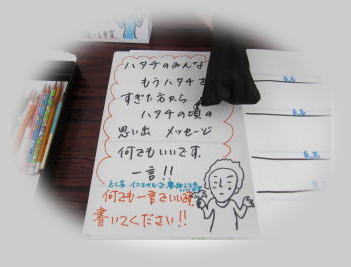 ハタチのみんな
もうハタチを
すぎた方から
ハタチの頃の
思い出 メッセージ
何でもいいです。
一言!!
何でも一言でいいです。
書いてください!!
氏名
氏名
氏名
氏名